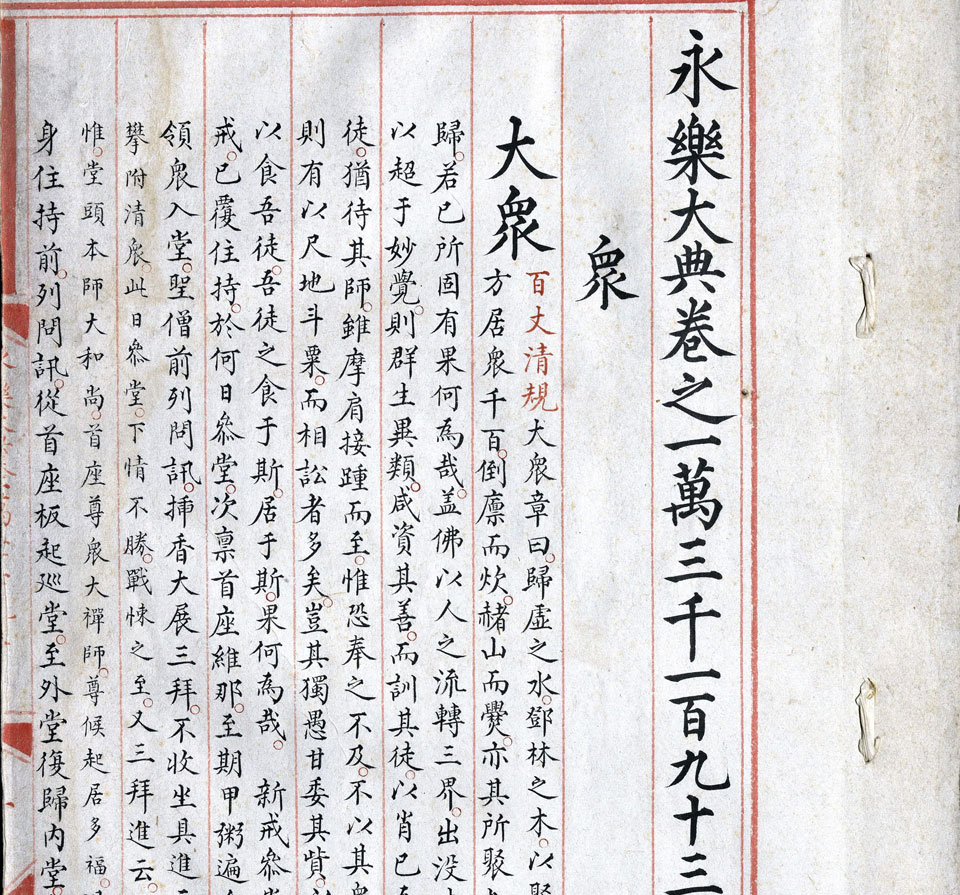 永樂大典卷之一萬三千一百九十三
衆
大衆
百丈清規大衆章曰歸虛之水鄧林之木以聚
方居衆千百倒廪而炊赭山而爨亦其所聚
歸若已所固有果何為哉盖佛以人之流轉三界出没
以超于妙覺則群生異類咸資其善而訓其徒以肖已
徒猶待其師雖摩肩接踵而至惟恐奉之不及不以其衆
則有以尺地斗粟而相訟者多矣豈其獨愚甘委其貲
以食吾徒吾徒之食于斯居于斯果何為哉 新戒叅
戒已覆住持於何日叅堂次禀首座維那至期甲粥遍
領衆入堂聖僧前列問訊揷香大展三拜不收坐具進
攀附清衆此日叅堂下情不勝戰悚之至又三拜進云
惟堂頭本師大和尚首座尊衆大禪師尊候起居多福
身住持前列問訊從首座板起廵堂至外堂復歸内堂